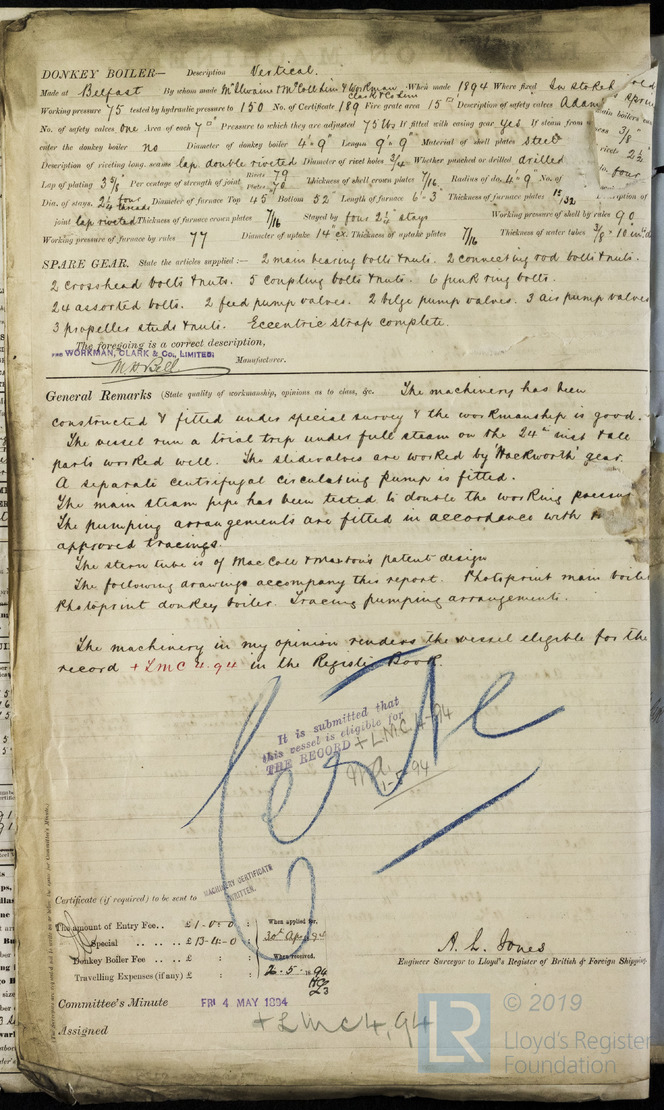 DONKEY BOILER— Description Vertical.
Made at Belfast By whom made McIlwaine & McColl Lim & Workman Clark & Co Lim When made 1894 Where fixed In stokehold
Working pressure 75 tested by hydraulic pressure to 150 No. of Certificate 189 Fire grate area 15 Description of safety valves Adams spring
No. of safety valves one Area of each 7" Pressure to which they are adjusted 75 lbs If fitted with easing gear yes If steam from main boilers can
enter the donkey boiler no Diameter of donkey boiler 4'9" Length 9'9" Material of shell plates steel 3/8
Description of riveting long. seams lap double riveted Diameter of rivet holes 3/4 Whether punched or drilled drilled 2 1/2
Lap of plating 3 5/8 Per centage of strength of joint Rivets 79 Plates 70 Thickness of shell crown plates 7/16 Radius of do. 4'9" No. of four
Dia. of stays. 2 1/4 four threads Diameter of furnace Top 45 Bottom 52 Length of furnace 6'3" Thickness of furnace plates 15/32 Description of
joint lap riveted Thickness of furnace crown plates 7/16 Stayed by four 2 1/4" stays Working pressure of shell by rules 90
Working pressure of furnace by rules 77 Diameter of uptake 14" ex. Thickness of uptake plates 7/16 Thickness of water tubes 3/8 - 10 in d
SPARE GEAR. State the articles supplied:— 2 main bearing bolts & nuts. 2 connecting rod bolts & nuts.
2 crosshead bolts & nuts. 5 coupling bolts & nuts. 6 junk ring bolts.
24 assorted bolts. 2 feed pump valves. 2 bilge pump valves. 3 air pump valves
3 propeller studs & nuts. Eccentric strap complete.
The foregoing is a correct description,
FOR WORKMAN, CLARK & Co., LIMITED.
Manufacturer.
General Remarks (State quality of workmanship, opinions as to class, &c. The machinery has been
constructed & fitted under special survey & the workmanship is good.
The vessel run a trial trip under full steam on the 24th inst & all
parts worked well. The slidevalves are worked by 'Hackworth' gear.
A separate centrifugal circulating pump is fitted.
The main steam pipe has been tested to double the working pressure
The pumping arrangements are fitted in accordance with
approved tracings.
The stern tube is of MacColl & Maxton's patent design
The following drawings accompany this report. Photoprint main boiler
Photoprint donkey boiler. Tracing pumping arrangements.
The machinery in my opinion renders the vessel eligible for the
record + LMC 4.94 in the Register Book.
It is submitted that
this vessel is eligible for
THE RECORD + LMC 4-94
1-5-94
MACHINERY CERTIFICATE
WRITTEN.
Certificate (if required) to be sent to
The amount of Entry Fee.. £1-0:0 : When applied for,
Special .. .. .. £13-4:-0 : 30th Apr 94
Donkey Boiler Fee .. .. £ : : When received,
Travelling Expenses (if any) £ : : 2.5.94
A. L. Jones
Engineer Surveyor to Lloyd's Register of British & Foreign Shipping.
Committee's Minute FRI 4 MAY 1894
Assigned + LMC 4,94
LR © 2019
Lloyd's Register
Foundation